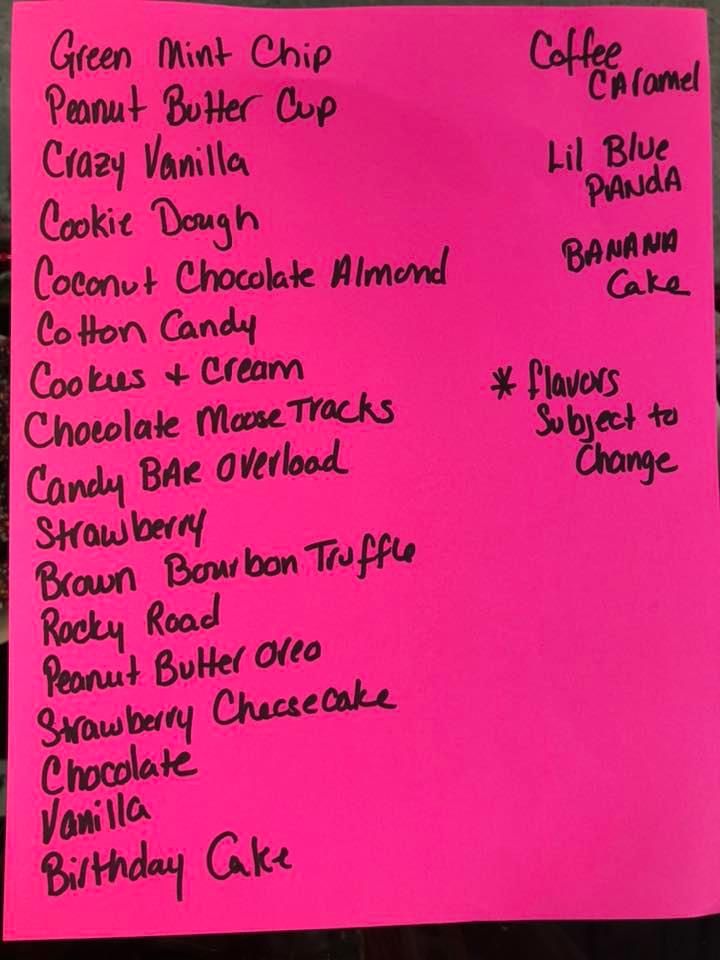 Green Mint Chip
Peanut Butter Cup
Crazy Vanilla
Cookie Dough
Coconut Chocolate Almond
Cotton Candy
Cookies + Cream
Chocolate Moose Tracks
Candy BAR Overload
Strawberry
Brown Bourbon Truffle
Rocky Road
Peanut Butter Oreo
Strawberry Cheesecake
Chocolate
Vanilla
Birthday Cake
Coffee
CARamel
Lil Blue
PANdA
BANANA
Cake
* flavors
Subject to
Change